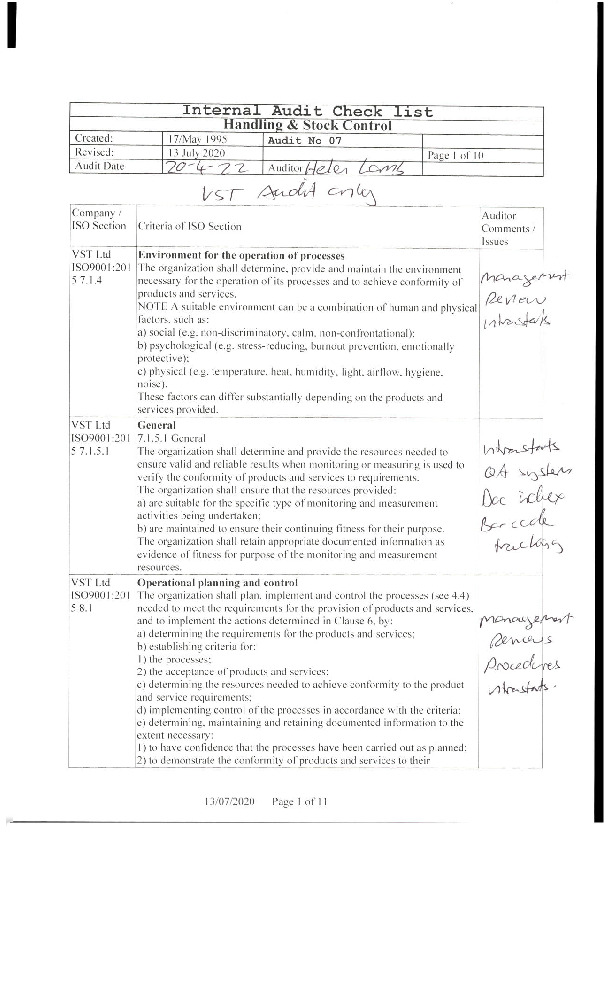 Internal Audit Check list
Handling & Stock Control
Created: 17/May 1995 Audit No 07
Revised: 13 July 2020 Page 1 of 10
Audit Date 20-4-22 Auditor Helen Lamb
VST Audit only
Company / ISO Section Criteria of ISO Section Auditor Comments / Issues
VST Ltd Environment for the operation of processes
ISO9001:201 The organization shall determine, provide and maintain the environment
5 7.1.4 necessary for the operation of its processes and to achieve conformity of
products and services.
NOTE A suitable environment can be a combination of human and physical
factors, such as:
a) social (e.g. non-discriminatory, calm, non-confrontational);
b) psychological (e.g. stress-reducing, burnout prevention, emotionally
protective);
c) physical (e.g. temperature, heat, humidity, light, airflow, hygiene,
noise).
These factors can differ substantially depending on the products and
services provided.
Management
Review
Intrastats
VST Ltd General
ISO9001:201 7.1.5.1 General
5 7.1.5.1 The organization shall determine and provide the resources needed to
ensure valid and reliable results when monitoring or measuring is used to
verify the conformity of products and services to requirements.
The organization shall ensure that the resources provided:
a) are suitable for the specific type of monitoring and measurement
activities being undertaken;
b) are maintained to ensure their continuing fitness for their purpose.
The organization shall retain appropriate documented information as
evidence of fitness for purpose of the monitoring and measurement
resources.
Intrastats
QA system
Doc index
Barcode
tracking
VST Ltd Operational planning and control
ISO9001:201 The organization shall plan, implement and control the processes (see 4.4)
5 8.1 needed to meet the requirements for the provision of products and services,
and to implement the actions determined in Clause 6, by:
a) determining the requirements for the products and services;
b) establishing criteria for:
1) the processes;
2) the acceptance of products and services;
c) determining the resources needed to achieve conformity to the product
and service requirements;
d) implementing control of the processes in accordance with the criteria;
e) determining, maintaining and retaining documented information to the
extent necessary:
1) to have confidence that the processes have been carried out as planned;
2) to demonstrate the conformity of products and services to their
Management
Reviews
Procedures
intrastats.
13/07/2020 Page 1 of 11